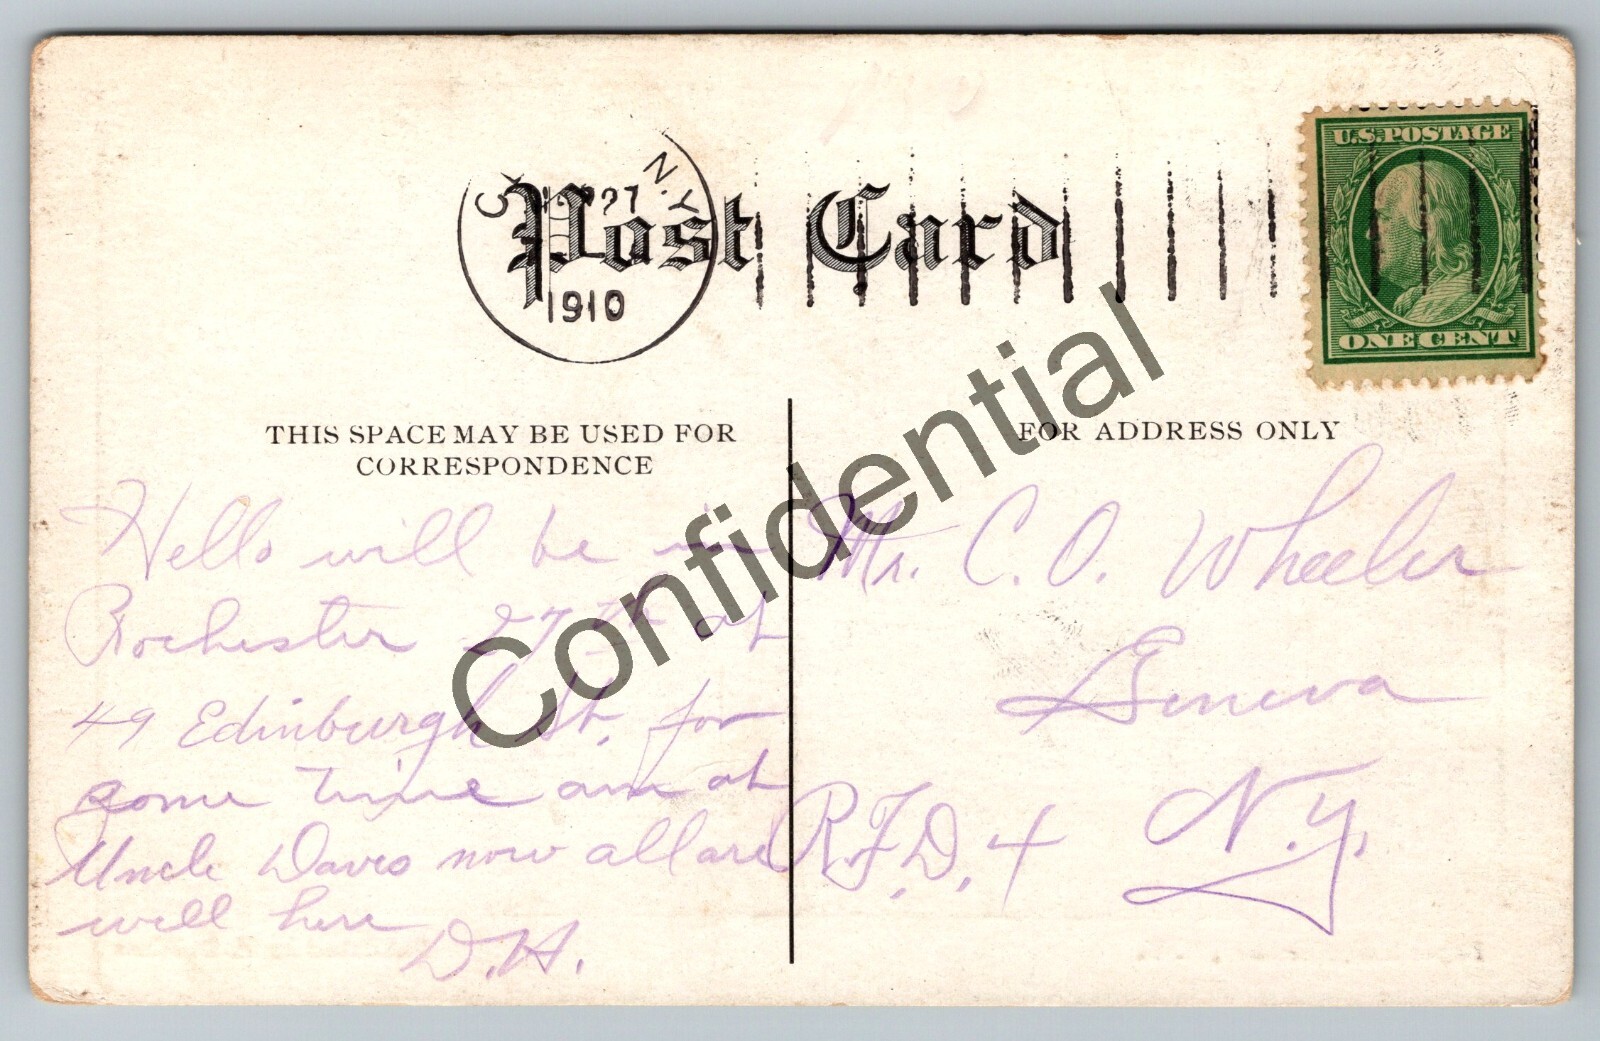 U.S. POSTAGE
ONE CENT
N.Y.
1910
Post Card
Confidential
THIS SPACE MAY BE USED FOR
CORRESPONDENCE
Hello will be in
Rochester 27th at
49 Edinburgh St. for
some time am at
Uncle Daves now all are
well here
D.H.
FOR ADDRESS ONLY
Mr. C. O. Wheeler
Geneva
R.F.D. 4 N.Y.